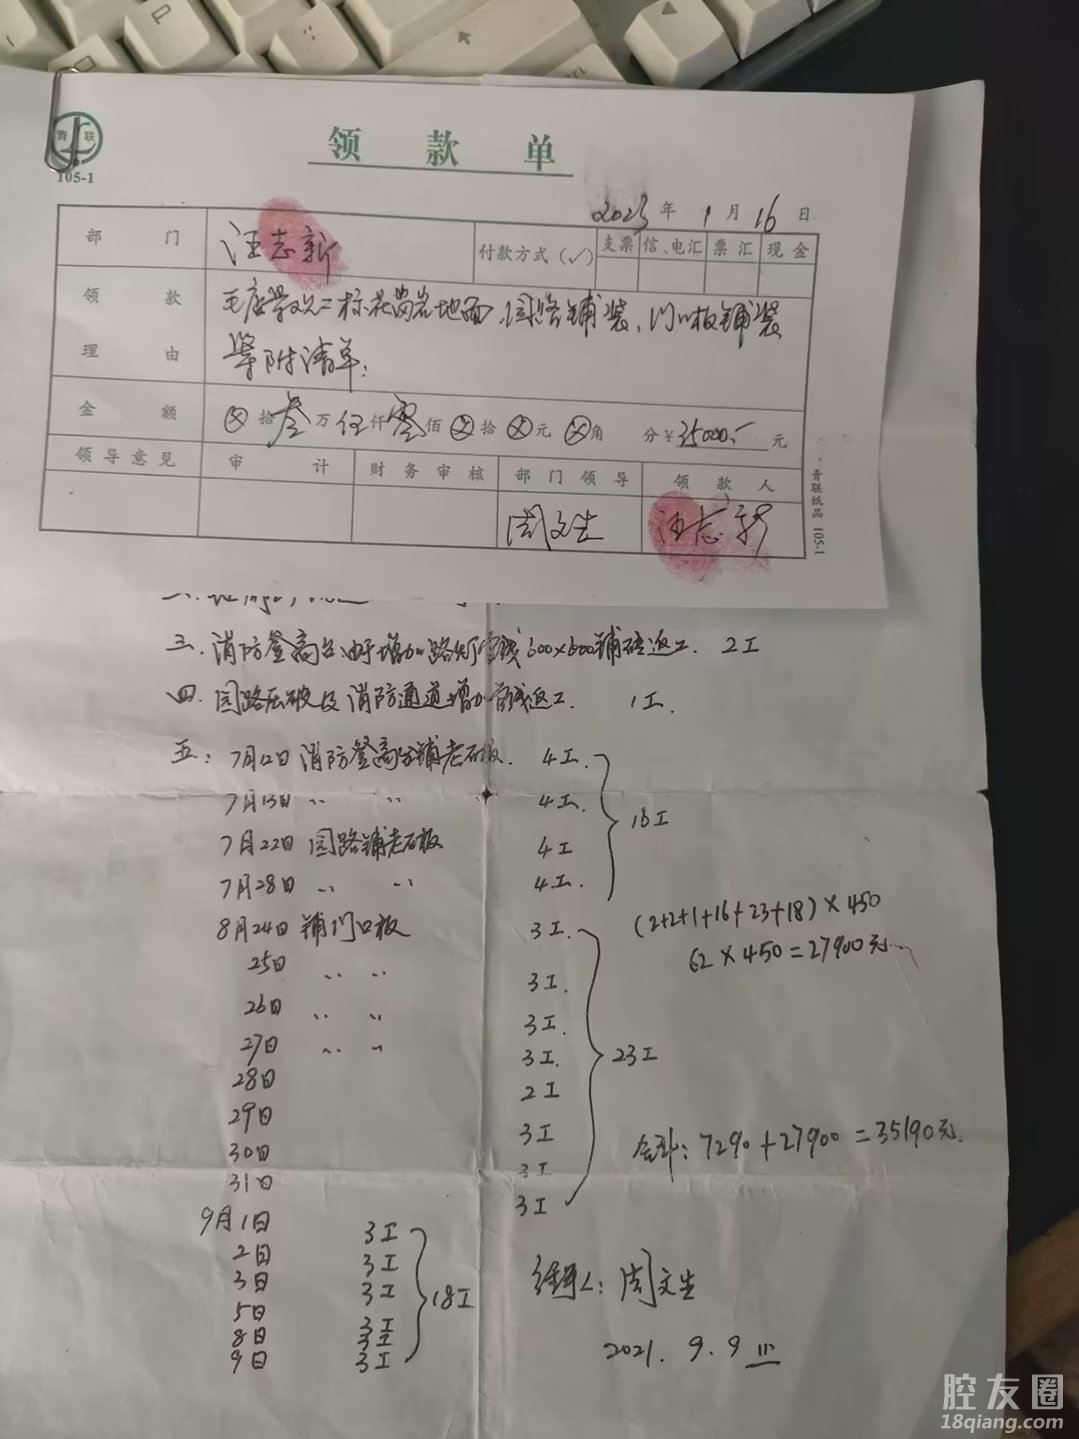 青 联
105-1
领 款 单
2023 年 1 月 16 日
部 门 汪志新 付款方式(√) 支票 信、电汇 票汇 现金
领 款 理 由
二标花岗岩地面、园路铺装、门口板铺装
等附清单:
金 额 ⊗拾叁万伍仟零佰⊗拾⊗元⊗角 分¥35000.- 元
领导意见 审 计 财 务 审 核 部 门 领 导 领 款 人
周文生 汪志新
青联纸品 105-1
三. 消防登高台由于增加路灯管线600×600铺砖返工. 2工
四. 园路压破及消防通道增加管线返工. 1工.
五: 7月12日 消防登高场铺老石板. 4工.
7月13日 〃 〃 4工.
16工
7月22日 园路铺老石板 4工
7月28日 〃 〃 4工.
8月24日 铺门口板 3工.
(2+2+1+16+23+18)×450
62×450=27900元
25日 〃 〃 3工.
26日 〃 〃 3工.
27日 〃 〃 3工.
23工
28日 2工
29日 3工
合计: 7290+27900=35190元.
30日 3工
31日 3工
9月1日 3工
2日 3工
3日 3工
18工
5日 3工
8日 3工
9日 3工
经手人: 周文生
2021. 9. 9
腔友圈
18qiang.com